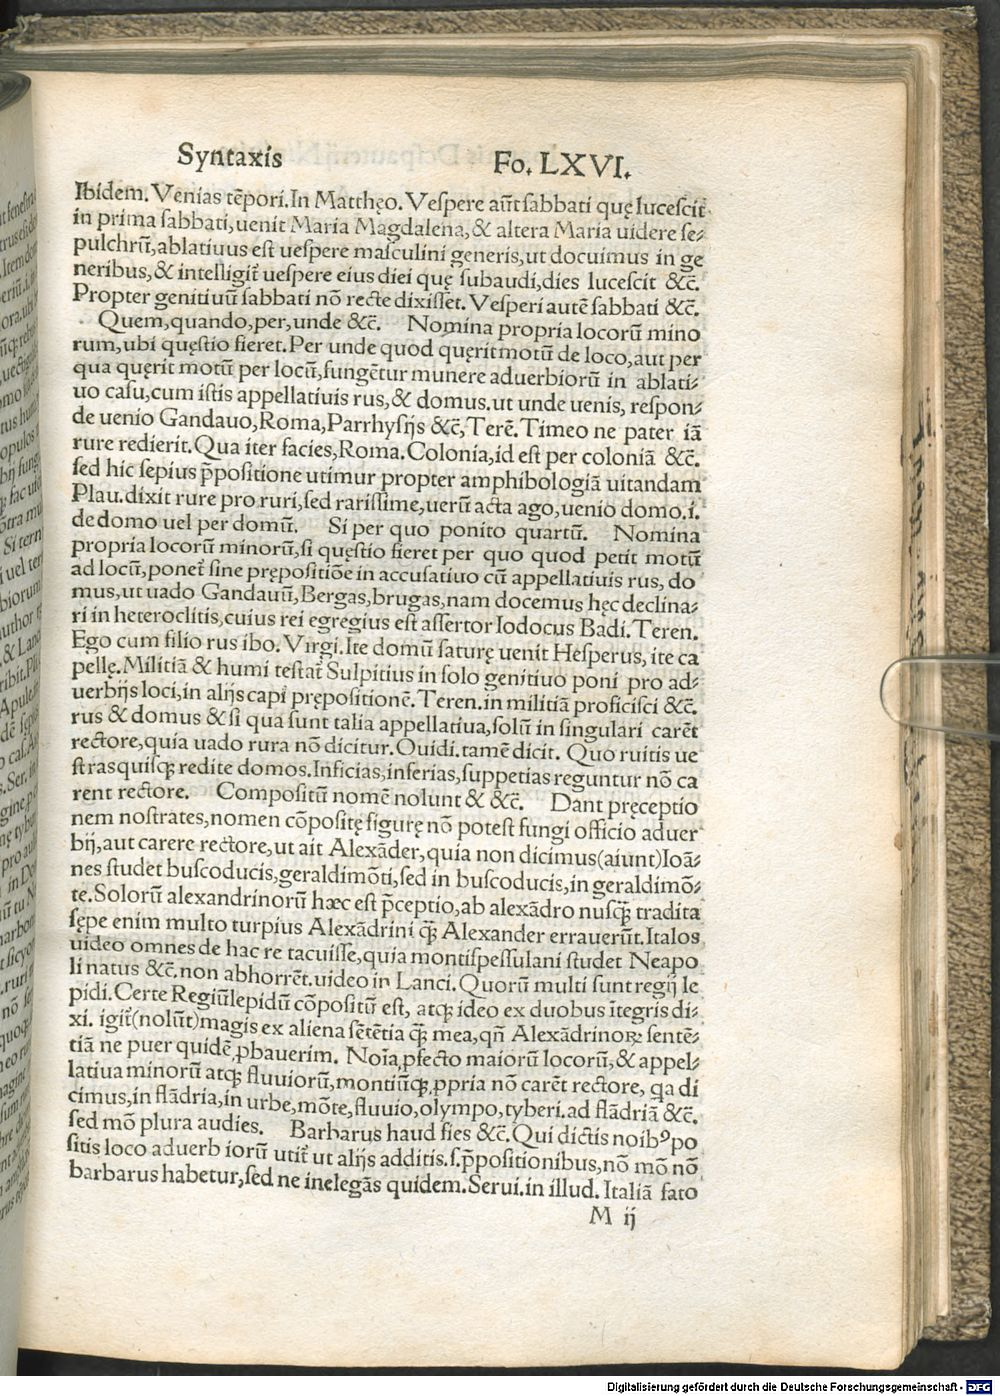 Syntaxis Fo. LXVI.
Ibidem. Venias tẽpori. In Matthęo. Vespere aũt sabbati quę lucescit
in prima sabbati, uenit Maria Magdalena, & altera Maria uidere se⸗
pulchrũ, ablatiuus est uespere masculini generis, ut docuimus in ge
neribus, & intelligit᷑ uespere eius diei quę subaudi, dies lucescit &c̃.
Propter genitiuũ sabbati nõ recte dixisset̃. Vesperi autẽ sabbati &c̃.
Quem, quando, per, unde &c̃. Nomina propria locorũ mino
rum, ubi quęstio fieret. Per unde quod quęrit motũ de loco, aut per
qua quęrit motũ per locũ, fungẽtur munere aduerbiorũ in ablati⸗
uo casu, cum istis appellatiuis rus, & domus. ut unde uenis, respon⸗
de uenio Gandauo, Roma, Parrhysijs &c̃, Terẽ. Timeo ne pater iã
rure redierit. Qua iter facies, Roma. Colonia, id est per coloniã &c̃.
sed hic sepius p̃positione utimur propter amphibologiã uitandam
Plau. dixit rure pro ruri, sed rarissime, uerũ acta ago, uenio domo. i.
de domo uel per domũ. Si per quo ponito quartũ. Nomina
propria locorũ minorũ, si quęstio fieret per quo quod petit motũ
ad locũ, ponet᷑ sine prępositiõe in accusatiuo cũ appellatiuis rus, do
mus, ut uado Gandauũ, Bergas, brugas, nam docemus hęc declina⸗
ri in heteroclitis, cuius rei egregius est assertor Iodocus Badi. Teren.
Ego cum filio rus ibo. Virgi. Ite domũ saturę uenit Hesperus, ite ca
pellę. Militiã & humi testat᷑ Sulpitius in solo genitiuo poni pro ad⸗
uerbijs loci, in alijs capi prępositionẽ. Teren. in militiã proficisci &c̃.
rus & domus & si qua sunt talia appellatiua, solũ in singulari carẽt
rectore, quia uado rura nõ dicitur. Ouidi. tamẽ dicit. Quo ruitis ue
stras quisqꝫ redite domos. Inficias, inferias, suppetias reguntur nõ ca
rent rectore. Compositũ nomẽ nolunt & &c̃. Dant pręceptio
nem nostrates, nomen cõpositę figurę nõ potest fungi officio aduer
bij, aut carere rectore, ut ait Alexãder, quia non dicimus (aiunt) Ioã⸗
nes studet buscoducis, geraldimõti, sed in buscoducis, in geraldimõ⸗
te. Solorũ alexandrinorũ hæc est p̃ceptio, ab alexãdro nusq̃ tradita
sępe enim multo turpius Alexãdrini q̃ Alexander errauerũt. Italos
uideo omnes de hac re tacuisse, quia montispessulani studet Neapo
li natus &c̃. non abhorrẽt. uideo in Lanci. Quorũ multi sunt regij le
pidi. Certe Regiũlepidũ cõpositũ est, atqꝫ ideo ex duobus ĩtegris di⸗
xi. igit᷑ (nolũt) magis ex aliena sẽtẽtia q̃ mea, qñ Alexãdrinoꝝ sentẽ⸗
tiã ne puer quidẽ ꝓbauerim. Noĩa ꝓfecto maiorũ locorũ, & appel⸗
latiua minorũ atqꝫ fluuiorũ, montiũqꝫ ꝓpria nõ carẽt rectore, qa di
cimus, in flãdria, in urbe, mõte, fluuio, olympo, tyberi. ad flãdriã &c̃.
sed mõ plura audies. Barbarus haud fies &c̃. Qui dictis noibꝰ po
sitis loco aduerb iorũ utit᷑ ut alijs additis. s. p̃positionibus, nõ mõ nõ
barbarus habetur, sed ne inelegãs quidem. Serui. in illud. Italiã fato
M ij
Digitalisierung gefördert durch die Deutsche Forschungsgemeinschaft - DFG